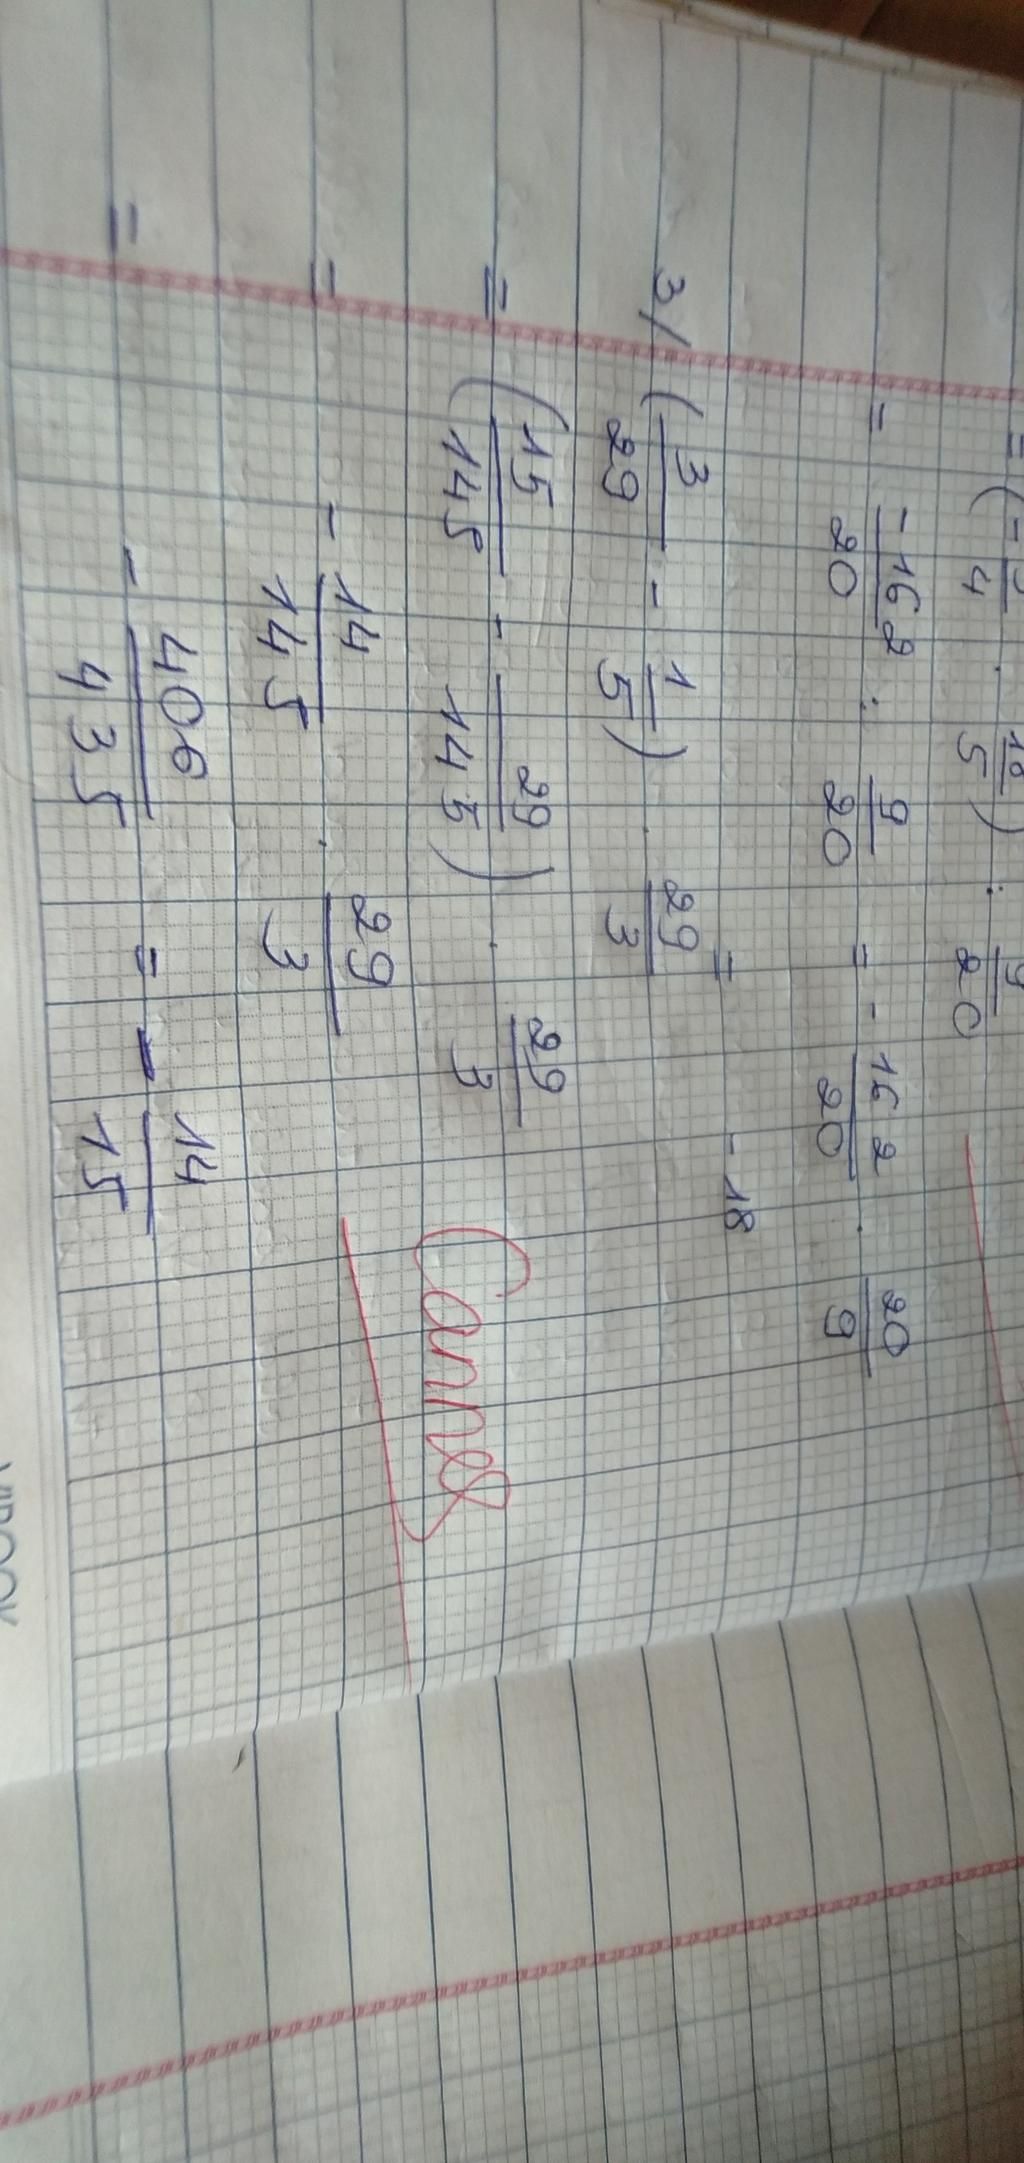 = (- /4 . 18/5) : 9/20
= -162/20 : 9/20 = - 162/20 . 20/9
= - 18
3/ (3/29 - 1/5) . 29/3
= (15/145 - 29/145) . 29/3
= - 14/145 . 29/3
= - 406/435 = - 14/15